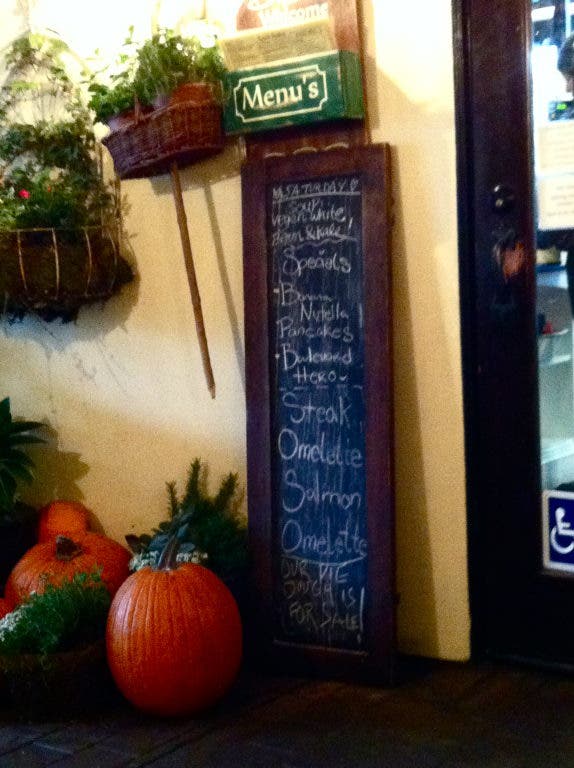 Welcome
Menu's
SATURDAY
Soup
Vegan White
Bean & Kale!
Specials
Banana
Nutella
Pancakes
Boulevard
Hero
Steak
Omelette
Salmon
Omelette
OUR PIE
DOUGH IS
FOR SALE!